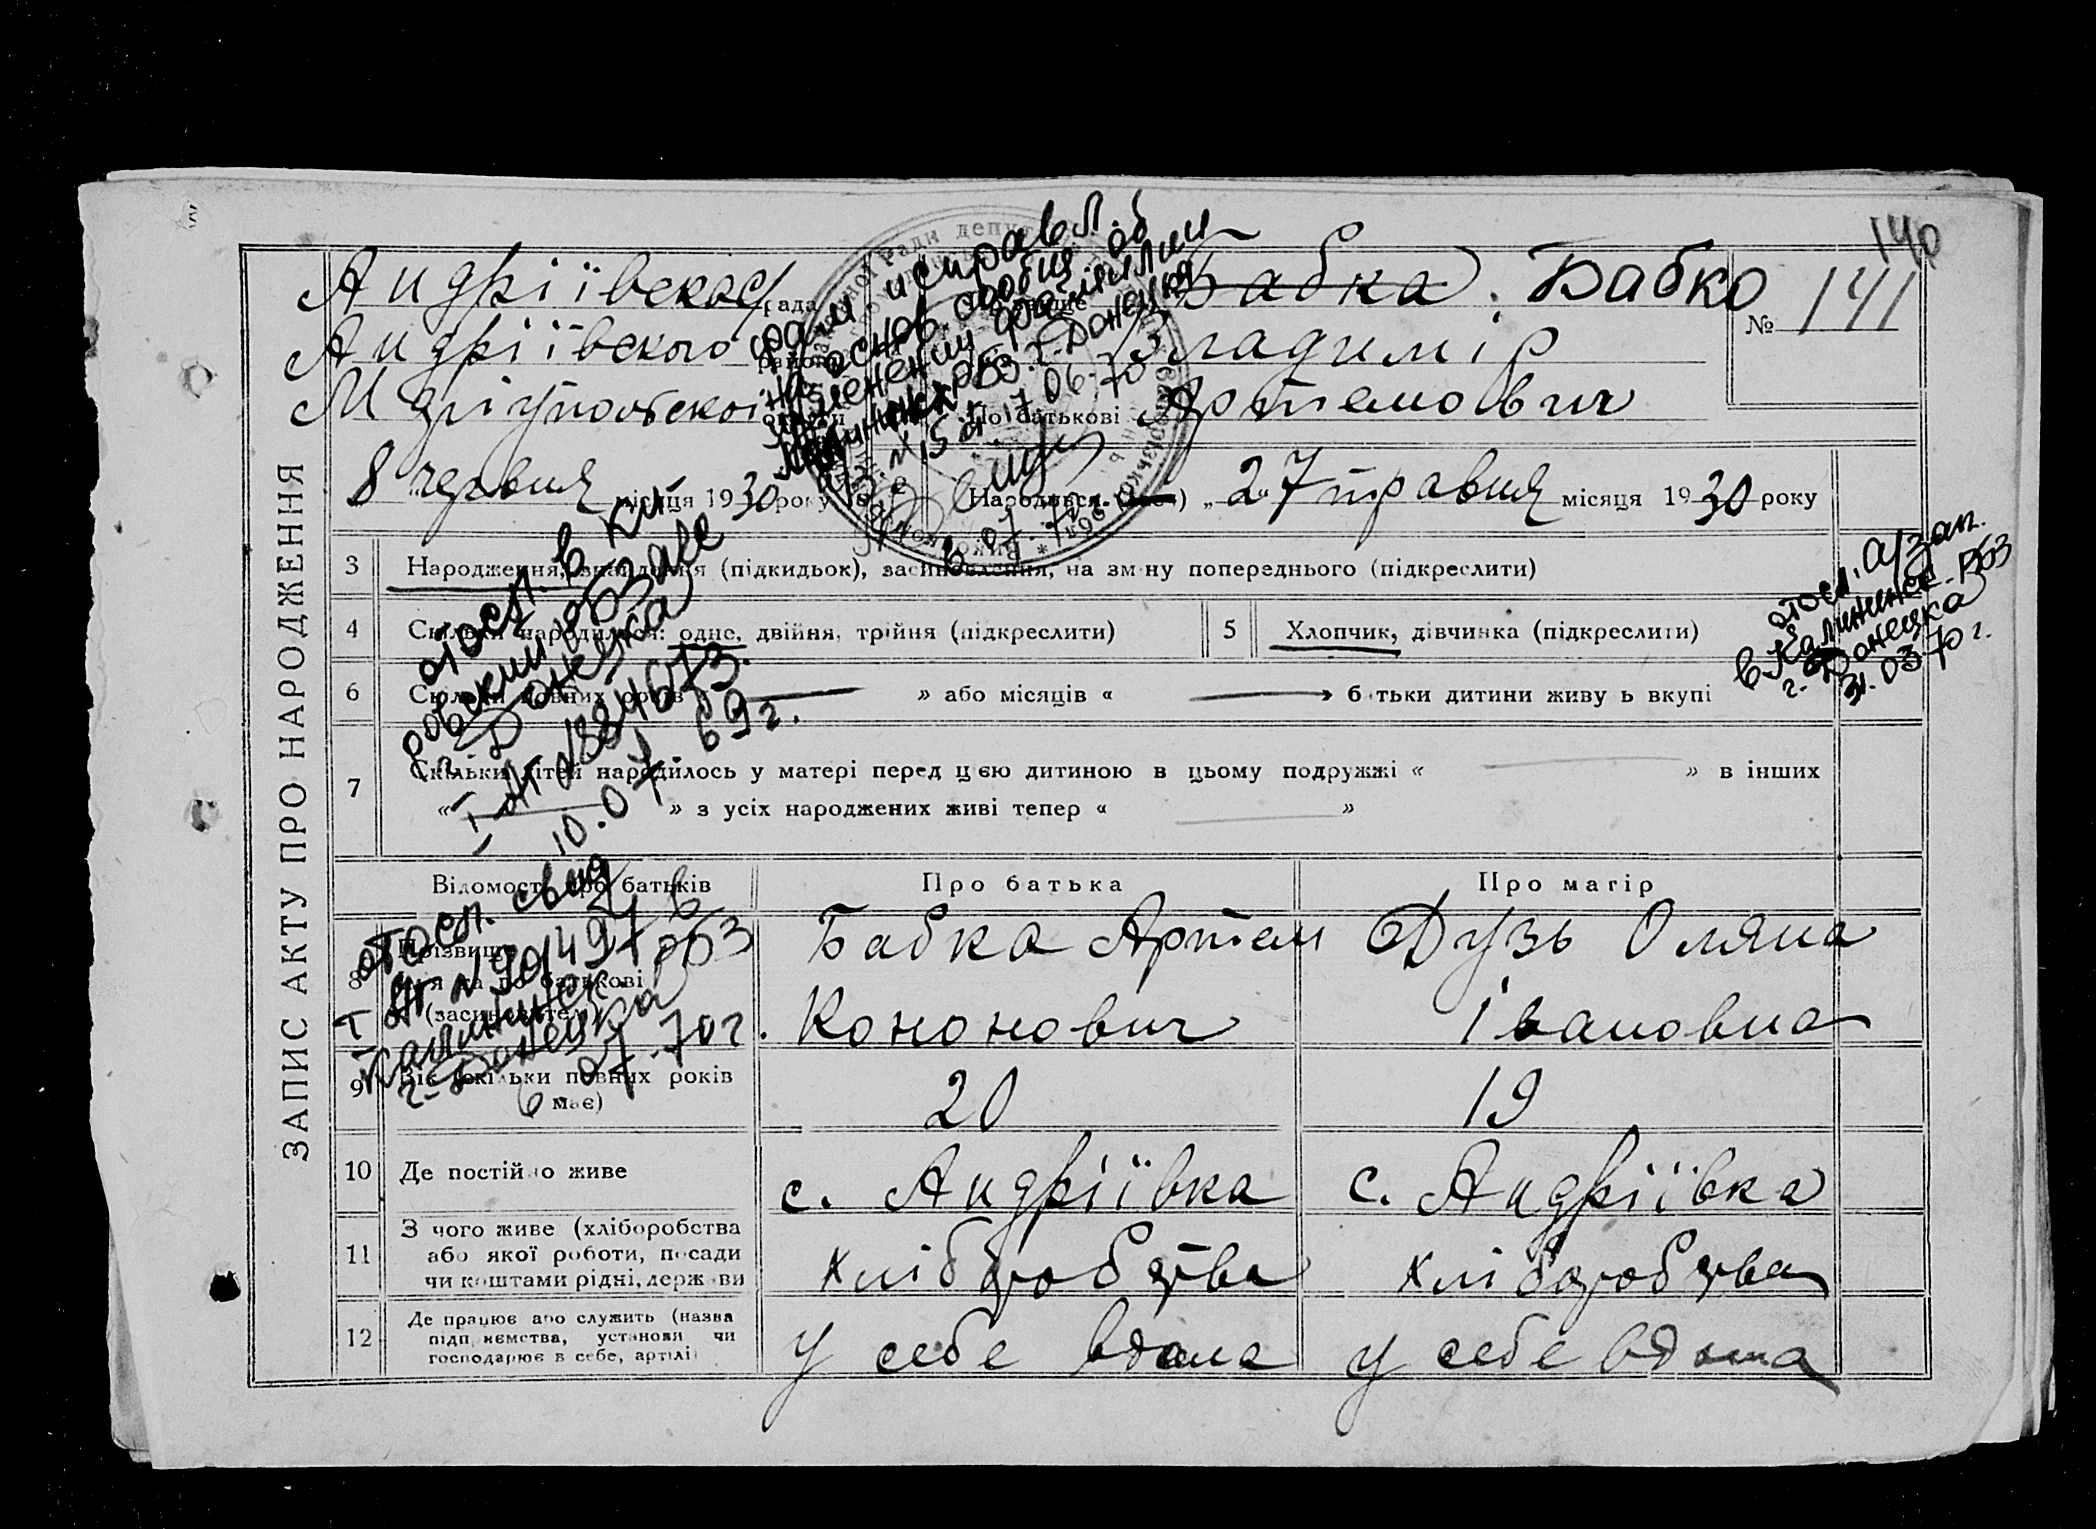 140
Андріївская рада
Бабка. Бабко
№ 141
Андріївского
Владимір
Маріупольской
По батькові Артемович
фам исправл.
на основ. сообщ. об
изменении фамилии
Калининск РБЗ г. Донецка
17.06.70
6.07.70г.
8 червня місяця 1930 року
Народився „27 травня місяця 1930 року
ЗАПИС АКТУ ПРО НАРОДЖЕННЯ
3 Народження, (підкидьок), засиновлення, на зміну попереднього (підкреслити)
4 Скільки народилося: одне, двійня, трійня (підкреслити)
5 Хлопчик, дівчинка (підкреслити)
отосл. а/зап.
в Калининск. РБЗ
г. Донецка
31.03.70 г.
отосл. в Ки
ровский РБЗ
г. Донецка
10.07.69г.
6 Скільки повних років » або місяців « » батьки дитини живуть вкупі
7 Скільки дітей народилось у матері перед цією дитиною в цьому подружжі « » в інших
« » з усіх народжених живі тепер « »
Відомості про батьків
Про батька
Про матір
отосл. свид в
№ 901497
Калининск. РБЗ
г. Донецка
6 07-70г.
8 Прізвище
(засиновител)
Бабка Артем
Кононович
Дузь Оляна
Івановна
9 Вік (скільки повних років має)
20
19
10 Де постійно живе
с. Андріївка
с. Андріївка
11 З чого живе (хліборобства
або якої роботи, посади
чи коштами рідні, держави
хліборобства
хліборобства
12 Де працює або служить (назва
підприємства, установи чи
господарює в себе, артілі)
у себе вдома
у себе вдома